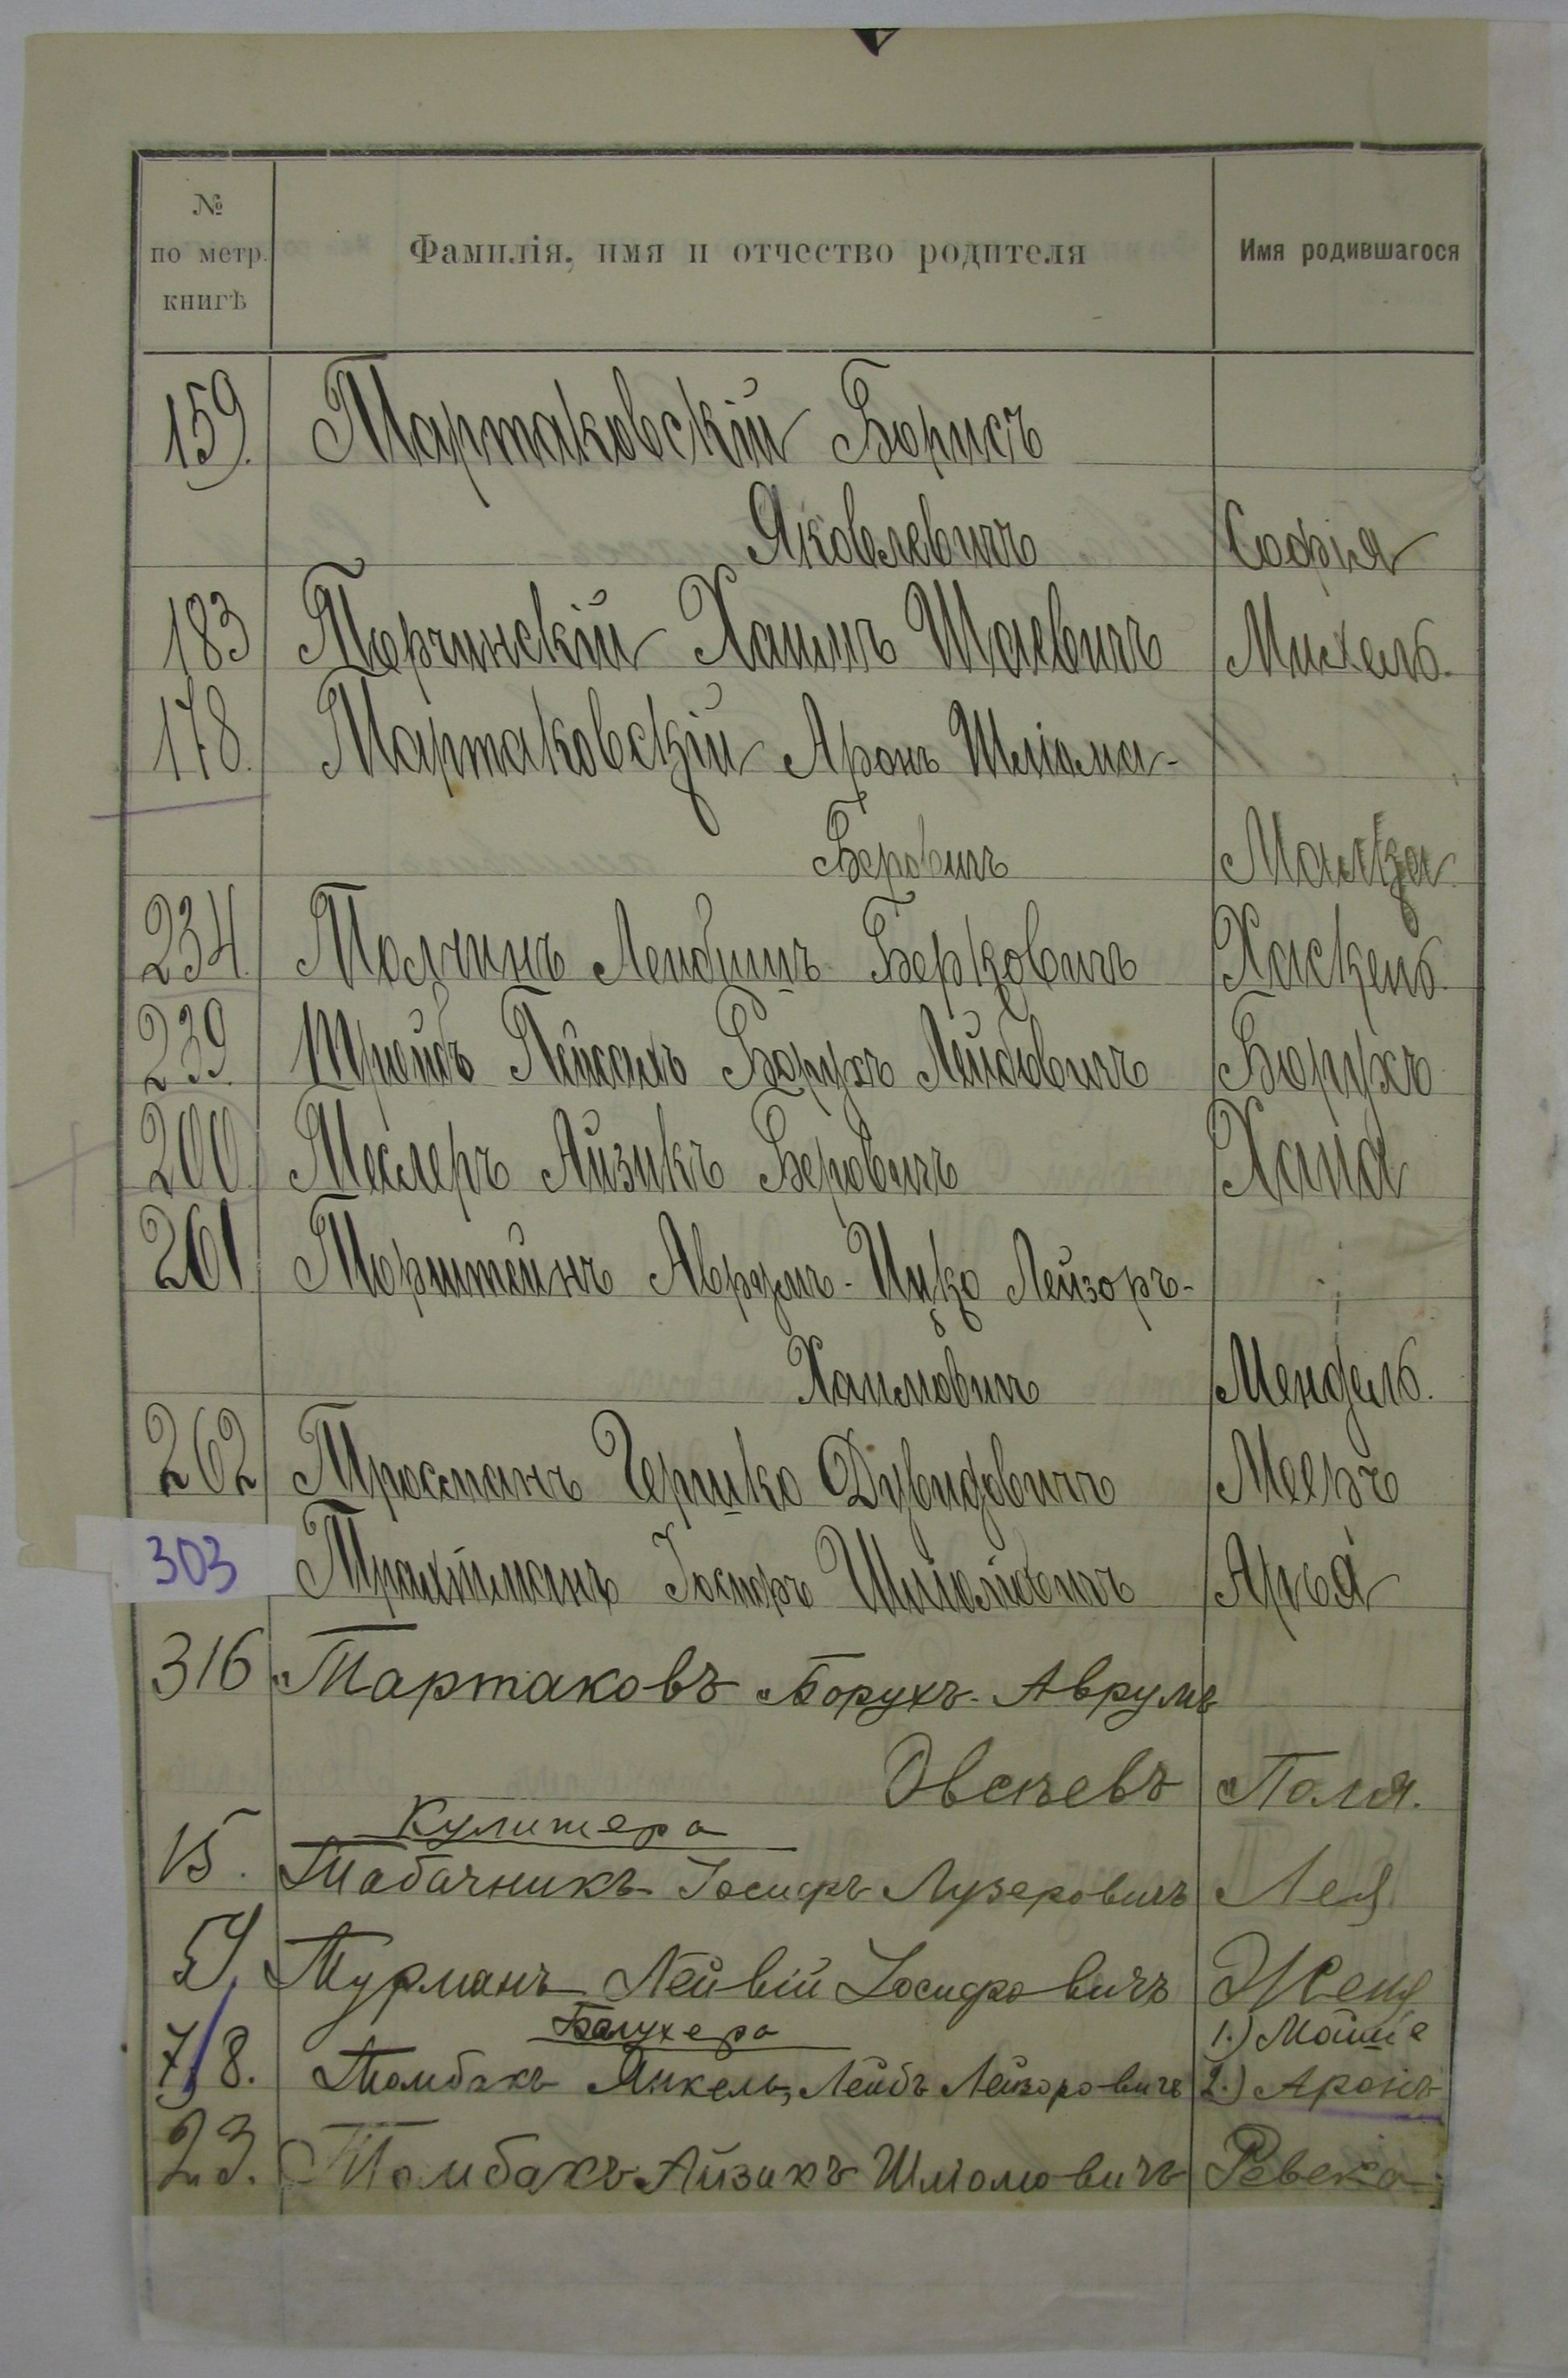 №
по метр.
книгѣ
Фамилія, имя и отчество родителя
Имя родившагося
159. Тартаковскій Борисъ
Яковлевичъ Софія
183 Торчинскій Хаимъ Шаевичъ Михель.
178. Тартаковскій Аронъ Шліома-
Беровичъ Малка
234. Толчинъ Лейбишъ Берковичъ Хаскель.
239. Трейбъ Пейсахъ Борухъ Лейбовичъ Борухъ
200. Теслеръ Айзикъ Беровичъ Хаия
261 Торштейнъ Аврумъ-Ицко Лейзоръ-
Хаимовичъ Мендель.
262 Тросманъ Гершко Дувидовичъ Мееръ
303 Трахтманъ Іосифъ Шліомовичъ Арья
316 Тартаковъ Борухъ-Аврумъ
Овсѣевъ Поля.
Кулишера
15. Табачникъ Іосифъ Лузеровичъ Лея
59. Турманъ Лейвій Іосифовичъ Женя
Балухера 1.) Мошіе
7/8. Томбакъ Янкель, Лейбъ Лейзоровичъ 2.) Аронъ
23. Томбакъ Айзикъ Шліомовичъ Ревека